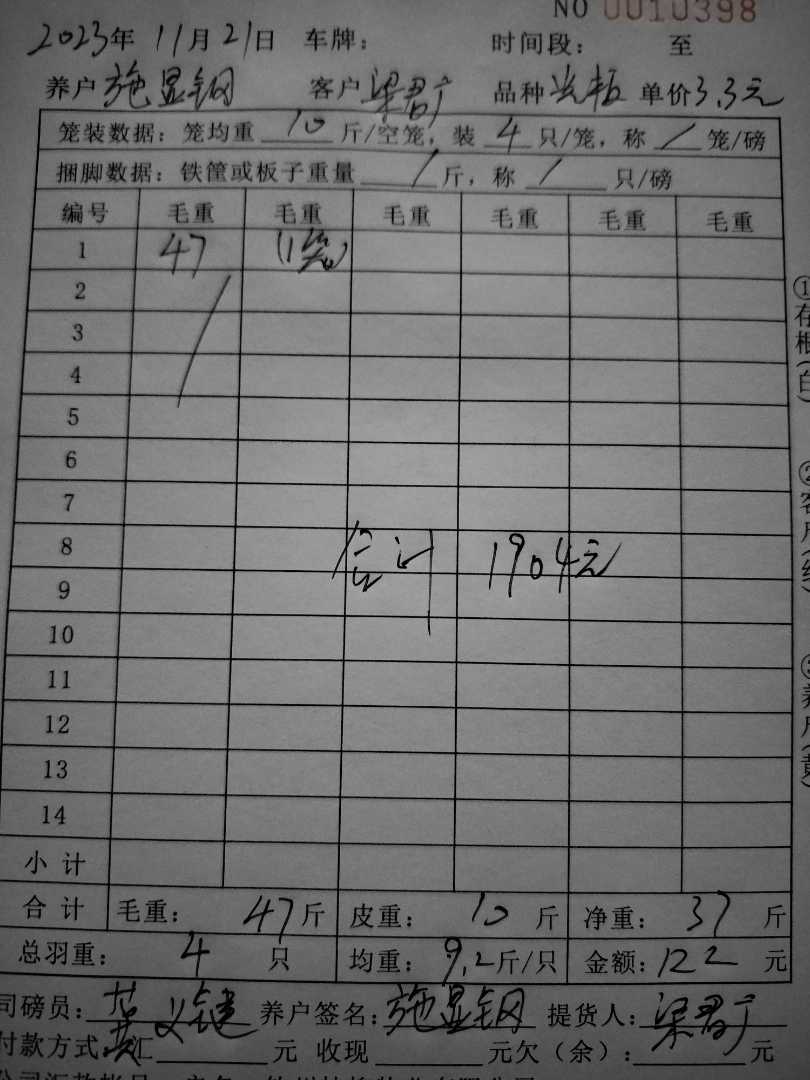 NO 0010398
2023年 11月21日 车牌： 时间段： 至
养户 施显钢 客户 梁君广 品种 单价3.3元
笼装数据：笼均重 10 斤/空笼，装 4 只/笼，称 / 笼/磅
捆脚数据：铁筐或板子重量 / 斤，称 / 只/磅
编号 毛重 毛重 毛重 毛重 毛重 毛重
1 47 (1笼)
2
3
4
5
6
7
8
合计 1904元
9
10
11
12
13
14
小计
合计 毛重： 47斤 皮重： 10 斤 净重： 37 斤
总羽重： 4 只 均重：9.2斤/只 金额：122 元
司磅员： 养户签名：施显钢 提货人：梁君广
付款方式 汇 元 收现 元欠（余）： 元
①存根(白)
②客户(红)
③养户(黄)